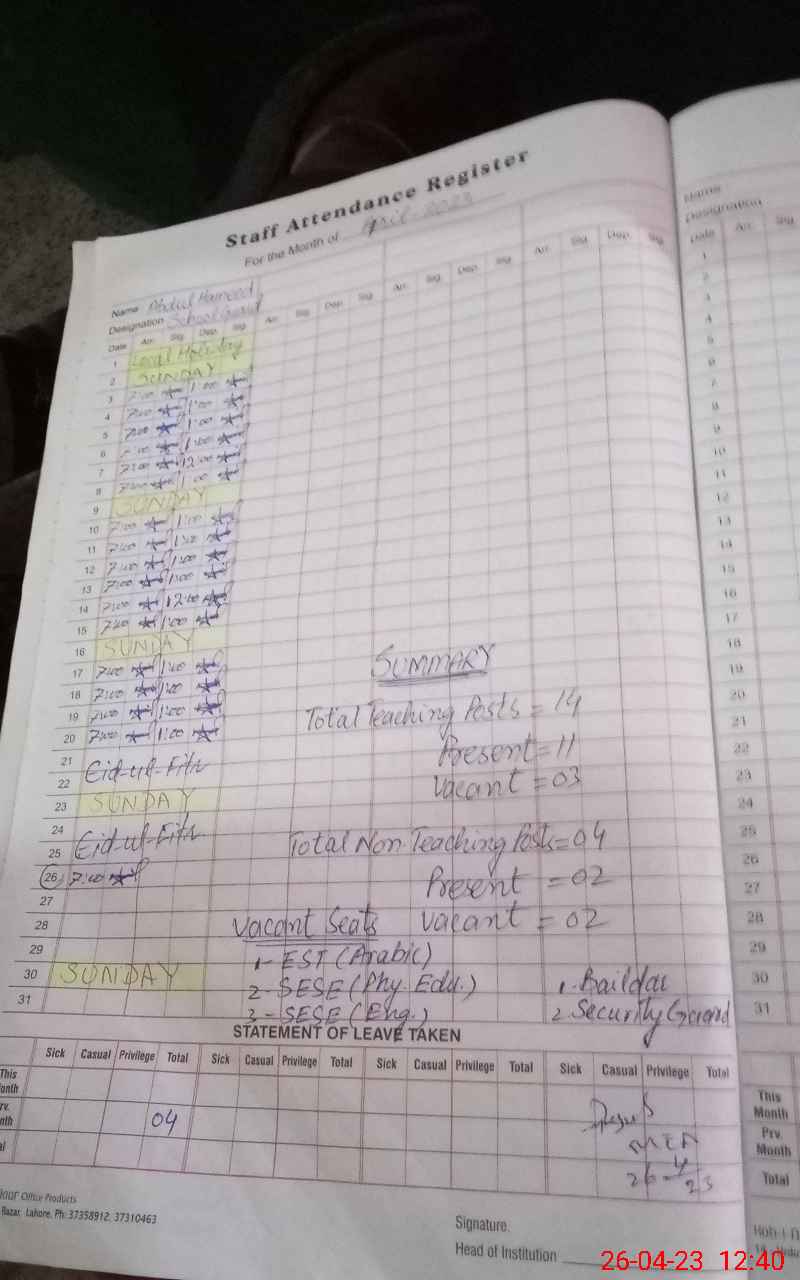 Staff Attendance Register
For the Month of April-2023
Name Abdul Hameed
Designation School Guard
Date Arr. Sig. Dep. Sig. Arr. Sig. Dep. Sig. Arr. Sig. Dep. Sig. Arr. Sig. Dep. Sig.
1 Local Holiday
2 SUNDAY
3 7:00 1:00
4 7:00 1:00
5 7:00 1:00
6 7:00 1:00
7 7:00 12:00
8 7:00 1:00
9 SUNDAY
10 7:00 1:00
11 7:00 1:00
12 7:00 1:00
13 7:00 1:00
14 7:00 12:00
15 7:00 1:00
16 SUNDAY
17 7:00 1:00
18 7:00 1:00
19 7:00 1:00
20 7:00 1:00
21
22 Eid-ul-Fitr
23 SUNDAY
24
25 Eid-ul-Fitr
26 7:00
27
28
29
30 SUNDAY
31
SUMMARY
Total Teaching Posts = 14
Present = 11
Vacant = 03
Total Non-Teaching Posts = 04
Present = 02
Vacant = 02
Vacant Seats
1- EST (Arabic)
2- SESE (Phy. Edu.)
3- SESE (Eng.)
1. Baildar
2. Security Guard
STATEMENT OF LEAVE TAKEN
Sick Casual Privilege Total Sick Casual Privilege Total Sick Casual Privilege Total Sick Casual Privilege Total
This
Month
Prv.
Month 04
MEA
26-4/23
Office Products
Bazar, Lahore. Ph: 37358912, 37310463
Signature.
Head of Institution
Name
Designation
Date Arr. Sig.
1
2
3
4
5
6
7
8
9
10
11
12
13
14
15
16
17
18
19
20
21
22
23
24
25
26
27
28
29
30
31
This
Month
Prv.
Month
Total
26-04-23 12:40